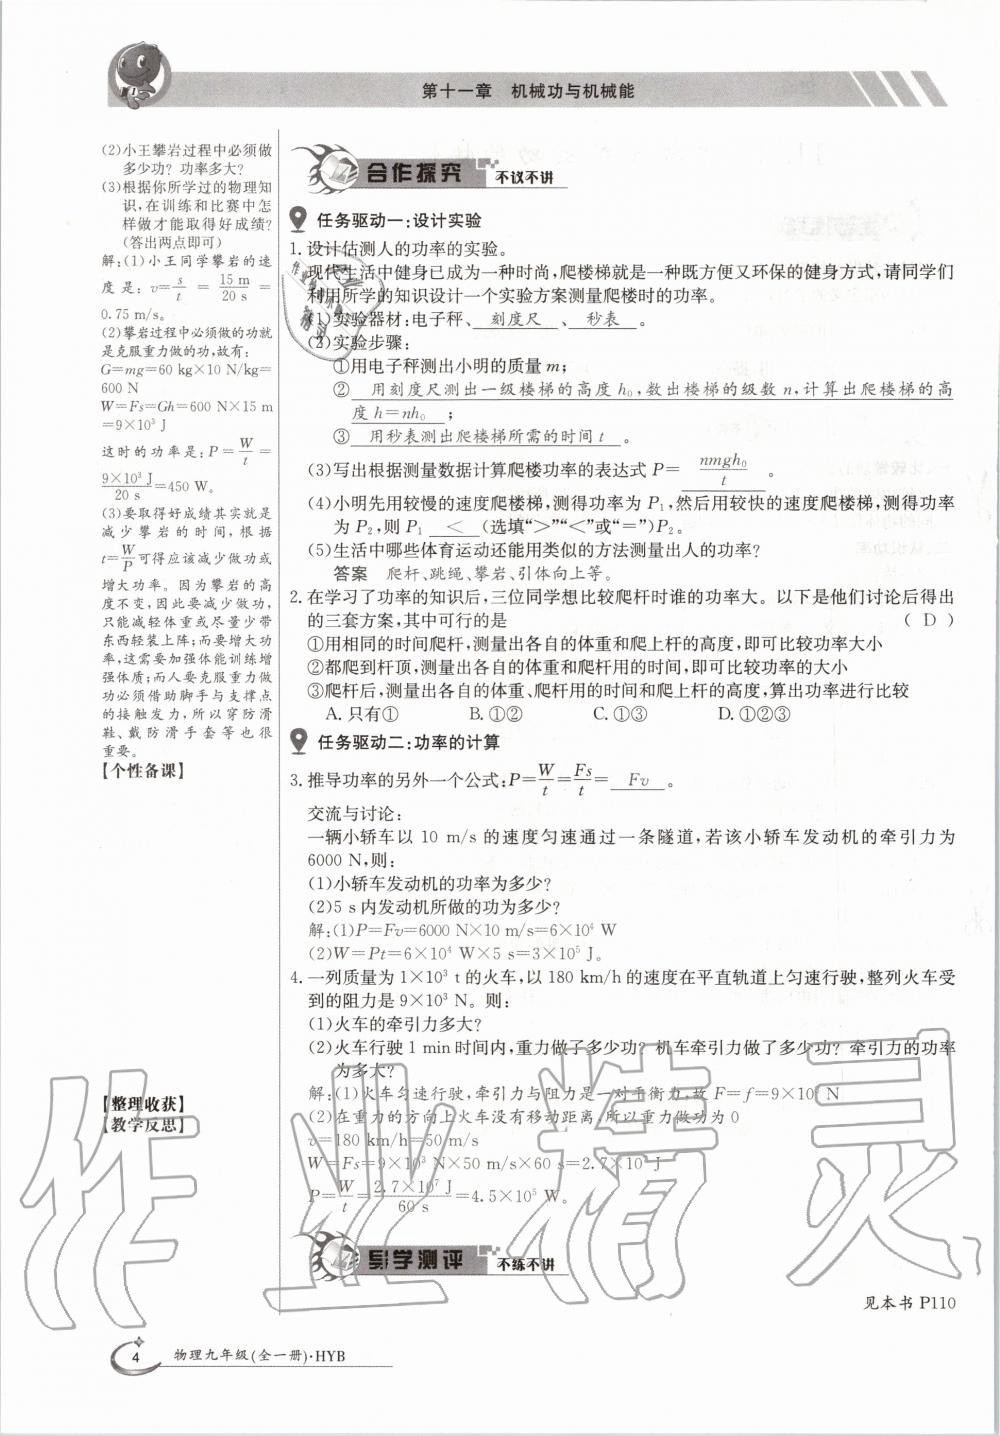 第十一章 机械功与机械能
(2)小王攀岩过程中必须做
多少功? 功率多大?
(3)根据你所学过的物理知
识,在训练和比赛中怎
样做才能取得好成绩?
(答出两点即可)
解:(1)小王同学攀岩的速
度是: v=s/t=15 m/20 s=
0.75 m/s。
(2)攀岩过程中必须做的功就
是克服重力做的功,故有:
G=mg=60 kg×10 N/kg=
600 N
W=Fs=Gh=600 N×15 m
=9×10³ J
这时的功率是:P=W/t=
9×10³ J/20 s=450 W。
(3)要取得好成绩其实就是
减少攀岩的时间,根据
t=W/P可得应该减少做功或
增大功率。因为攀岩的高
度不变,因此要减少做功,
只能减轻体重或尽量少带
东西轻装上阵;而要增大功
率,这需要加强体能训练增
强体质;而人要克服重力做
功必须借助脚手与支撑点
的接触发力,所以穿防滑
鞋、戴防滑手套等也很
重要。
【个性备课】
【整理收获】
【教学反思】
合作探究 不议不讲
任务驱动一:设计实验
1. 设计估测人的功率的实验。
现代生活中健身已成为一种时尚,爬楼梯就是一种既方便又环保的健身方式,请同学们
利用所学的知识设计一个实验方案测量爬楼时的功率。
(1)实验器材:电子秤、 刻度尺 、 秒表 。
(2)实验步骤:
①用电子秤测出小明的质量 m;
② 用刻度尺测出一级楼梯的高度 h₀,数出楼梯的级数 n,计算出爬楼梯的高
度 h=nh₀ ;
③ 用秒表测出爬楼梯所需的时间 t 。
(3)写出根据测量数据计算爬楼功率的表达式 P= nmgh₀/t 。
(4)小明先用较慢的速度爬楼梯,测得功率为 P₁,然后用较快的速度爬楼梯,测得功率
为 P₂,则 P₁ < (选填“>”“<”或“=”)P₂。
(5)生活中哪些体育运动还能用类似的方法测量出人的功率?
答案 爬杆、跳绳、攀岩、引体向上等。
2. 在学习了功率的知识后,三位同学想比较爬杆时谁的功率大。以下是他们讨论后得出
的三套方案,其中可行的是 ( D )
①用相同的时间爬杆,测量出各自的体重和爬上杆的高度,即可比较功率大小
②都爬到杆顶,测量出各自的体重和爬杆用的时间,即可比较功率的大小
③爬杆后,测量出各自的体重、爬杆用的时间和爬上杆的高度,算出功率进行比较
A. 只有① B. ①② C. ①③ D. ①②③
任务驱动二:功率的计算
3. 推导功率的另外一个公式:P=W/t=Fs/t= Fv 。
交流与讨论:
一辆小轿车以 10 m/s 的速度匀速通过一条隧道,若该小轿车发动机的牵引力为
6000 N,则:
(1)小轿车发动机的功率为多少?
(2)5 s内发动机所做的功为多少?
解:(1)P=Fv=6000 N×10 m/s=6×10⁴ W
(2)W=Pt=6×10⁴ W×5 s=3×10⁵ J。
4. 一列质量为 1×10³ t 的火车,以 180 km/h 的速度在平直轨道上匀速行驶,整列火车受
到的阻力是 9×10³ N。则:
(1)火车的牵引力多大?
(2)火车行驶 1 min 时间内,重力做了多少功? 机车牵引力做了多少功? 牵引力的功率
为多大?
解:(1)火车匀速行驶,牵引力与阻力是一对平衡力,故 F=f=9×10³ N
(2)在重力的方向上火车没有移动距离,所以重力做功为 0
v=180 km/h=50 m/s
W=Fs=9×10³ N×50 m/s×60 s=2.7×10⁷ J
P=W/t=2.7×10⁷ J/60 s=4.5×10⁵ W。
导学测评 不练不讲
见本书 P110
4 物理九年级(全一册)·HYB
作业精灵